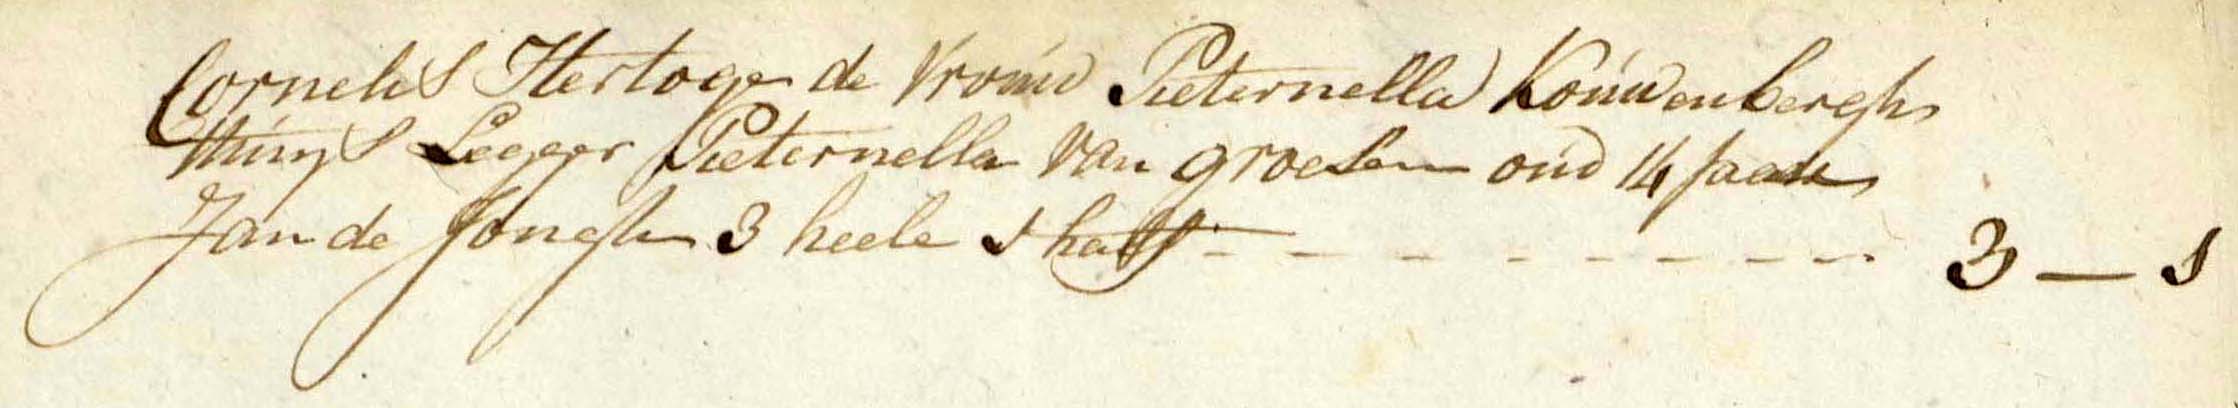 Cornelis Hertoge de Vrouw Pieternella Kouwenbergh
thuys Legger Pieternella van groesen oud 14 Jaar
Jan de Jongh 3 heele 1 half - - - - - - - - 3 — 1